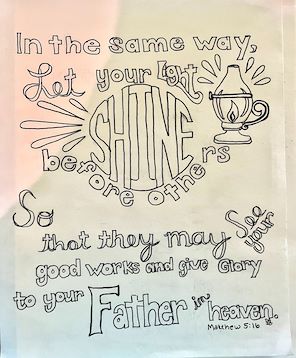 In the same way,
Let your light
SHINE
before others
So
that they may see your
good works and give Glory
to your Father in heaven.
Matthew 5:16